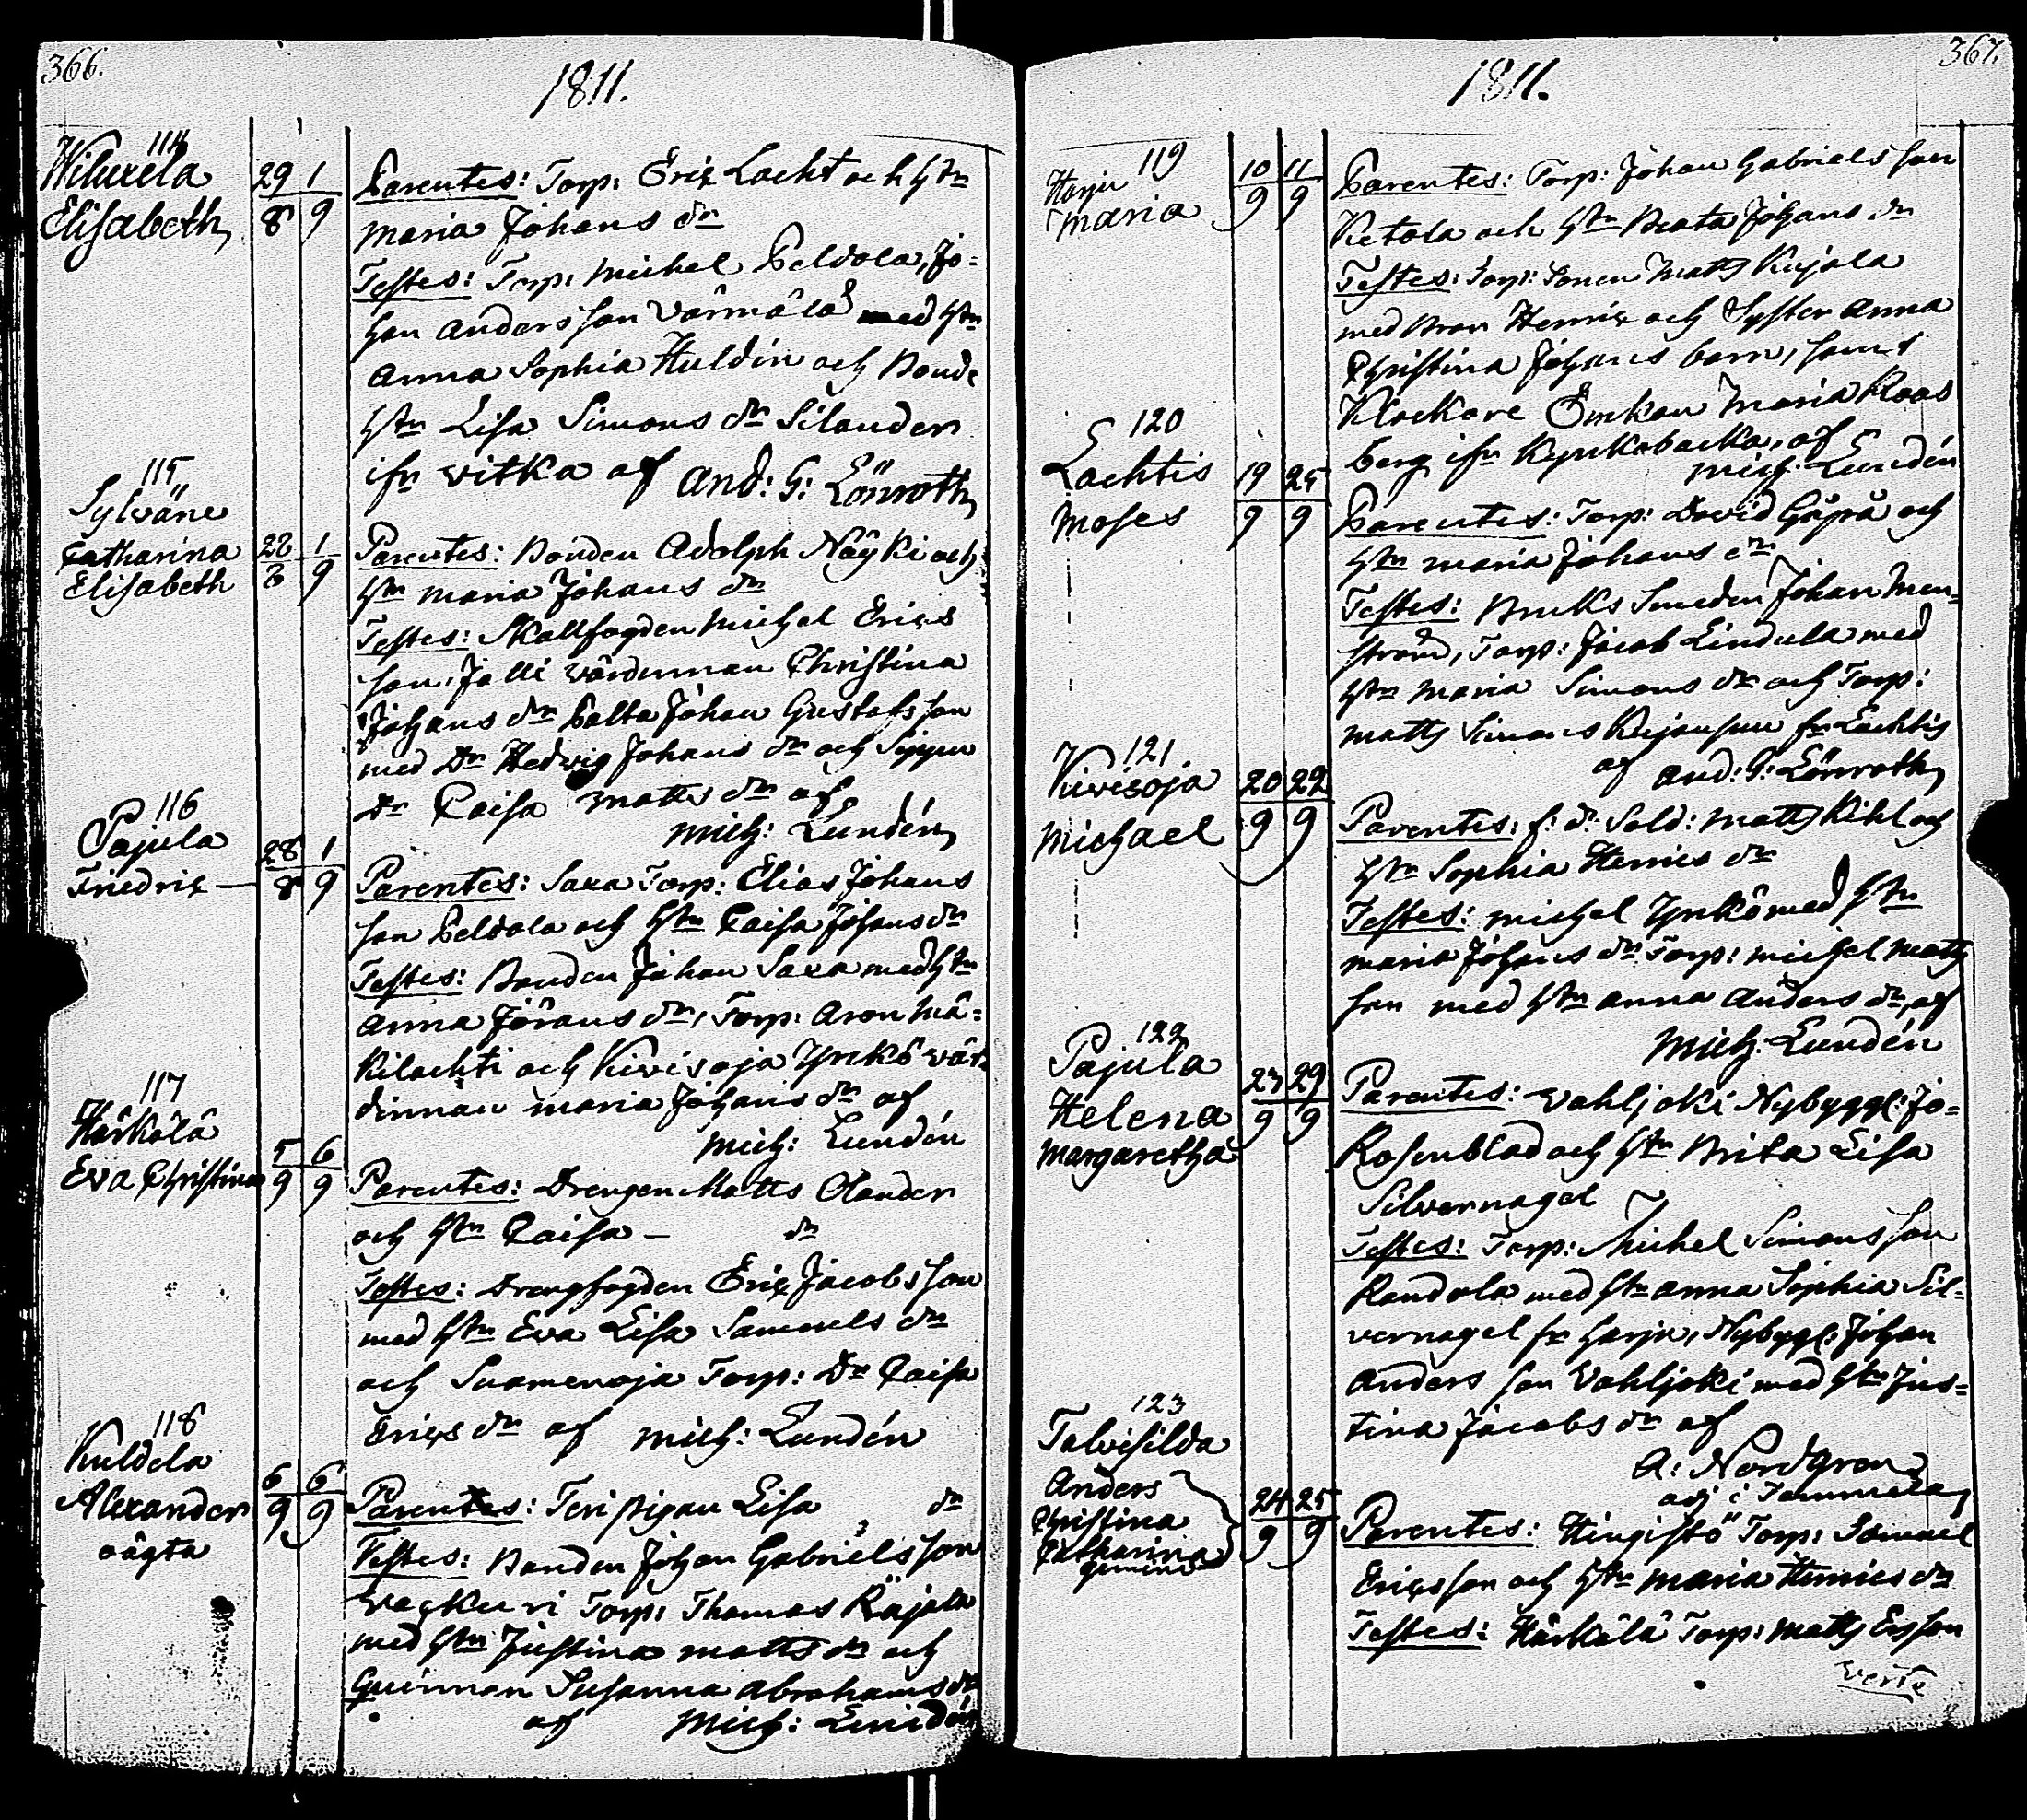 366.
1811.
114
Elisabeth
29 1
8 9
Parentes: Torp: Eric Lacht och hstn
maria Johans dr
Testes: Torp: michel Peldola, Jo=
han andersson med hstn
anna Sophia Huldin och Bonde
hstn Lisa Simons dr Silander
ifrn witka af And: G: Lönroth
115
Sylväne
Catharina
Elisabeth
28 1
8 9
Parentes: Bonden Adolph Näyki och
hstn maria Johans dr
Testes: Skallfogden michel Erics
son, Jalli värdinnan Christina
Johans dr Johan Gustafsson
med Dr Hedwig Johans dr och
Dr Caisa matts dr af
mich: Lundén
116
Pajula
Friedric —
28 1
8 9
Parentes: Saxa Torp: Elias Johans
son Peldola och hstn Caisa Johans dr
Testes: Bonden Johan Saxa med hstn
anna Jörans dr, Torp: Aron Mä=
kilachti och Kivisoja Yrckö vär=
dinnan maria Johans dr af
mich: Lundén
117
Härkälä
Eva Christina
5 6
9 9
Parentes: Drengen Matts Olander
och hstn Caisa — dr
Testes: Drengfogden Eric Jacobsson
med hstn Eva Lisa Samuels dr
och Suomenoja Torp: Dr Caisa
Erics dr af mich: Lundén
118
Kuldela
Alexander
oägta
6 6
9 9
Parentes: Teri pigan Lisa dr
Testes: Bonden Johan Gabrielsson
Torp: Thomas Räjälä
med hstn Justina matts dr och
Qvinnan Susanna abrahams dr
af mich: Lundén
367.
1811.
119
Harju
maria
10 11
9 9
Parentes: Torp: Johan Gabrielsson
Ketola och hstn Beata Johans dr
Testes: Torp: Sonen Matts Kujala
med Bror Henric och Syster Anna
Christina Johans barn, samt
Klockare Enkan Maria Roos
berg ifrn Kyrckobacka, af
mich: Lundén
120
Lachtis
Moses
19 25
9 9
Parentes: Torp: David och
hstn maria Johans dr
Testes: Bruks Smeden Johan Men=
ström, Torp: Jacob Lindula med
hstn maria Simons dr och Torp:
matts Simons fr Lachtis
af And: G: Lönroth
121
Kivisoja
Michael
20 22
9 9
Parentes: f: d: Sold: Matts Kihl och
hstn Sophia Henrics dr
Testes: michel Yrckö med hstn
maria Johans dr Torp: michel matts
son med hstn anna anders dr, af
Mich: Lundén
122
Pajula
Helena
Margaretha
23 29
9 9
Parentes: Vahljoki Nybyggl: Jo=
Rosenblad och hstn Brita Lisa
Silvernagel
Testes: Torp: Michel Simonsson
Randola med hstn anna Sophia Sil=
vernagel fr Harju, Nybyggl: Johan
Anders son Vahljoki med hstn Jus=
tina Jacobs dr af
A: Nordgren
adj i Tammela
123
Talvisilda
Anders
Christina
Catharina
gemini
24 25
9 9
Parentes: Hingistö Torp: Samuel
Ericsson och hstn maria Henrics dr
Testes: Härkälä Torp: Matts Ersson
verte